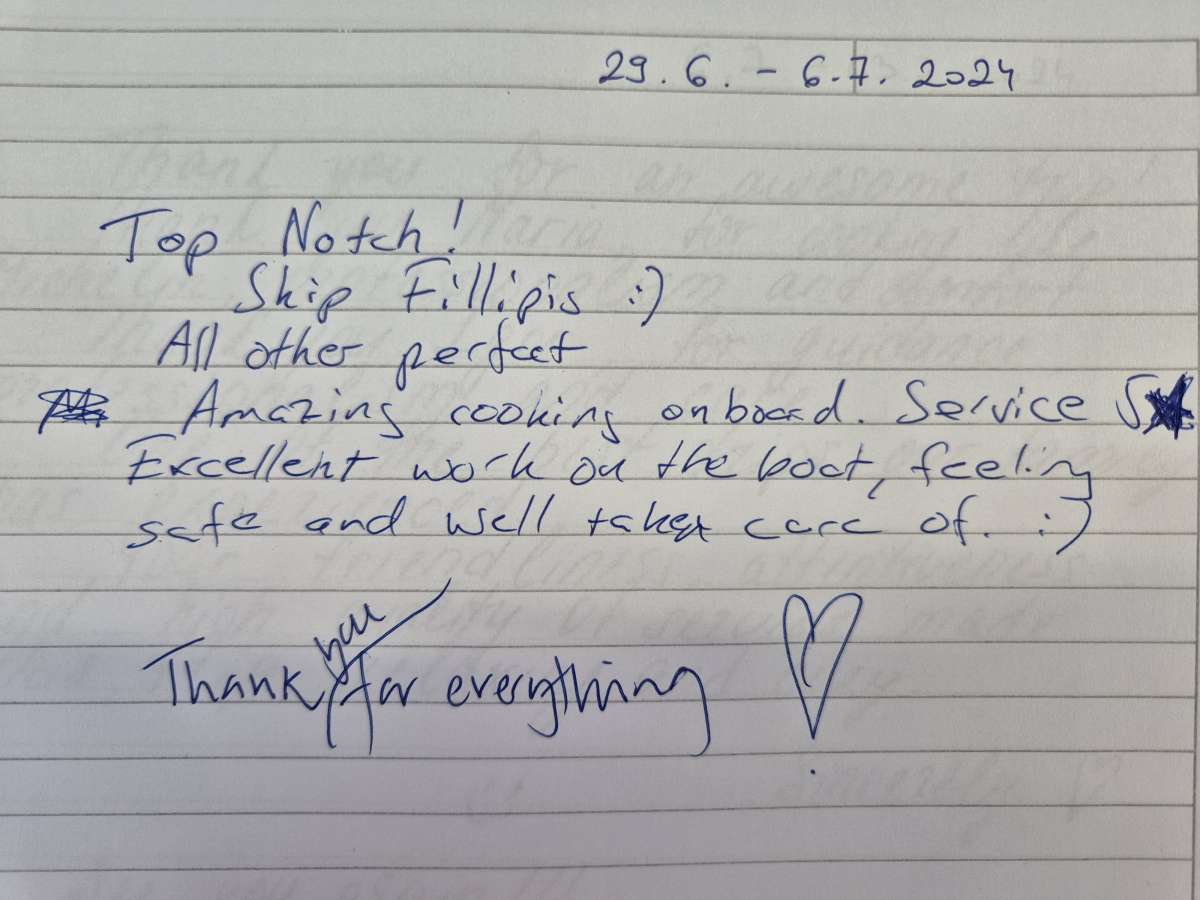 29. 6. - 6.7. 2024
Top Notch!
Skip Fillipis :)
All other perfect
Amazing cooking onboard. Service 5★
Excellent work on the boat, feeling
safe and well taken care of. :)
Thank you for everything ♡